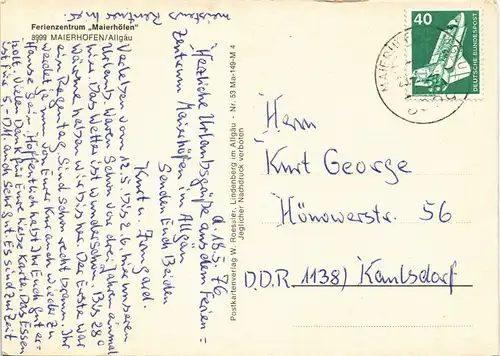 Ferienzentrum „Maierhöfen"
8999 MAIERHÖFEN/Allgäu
d. 18.5.76
Herzliche Urlaubsgrüße aus dem Ferien=
Zentrum Maierhöfen im Allgäu
Senden Euch Beiden
Kurt u. Irmgard.
Verleben vom 12.5. bis 2.6. hier unseren
Urlaub. Waren schon vor drei Jahren einmal
hier. Das Wetter ist wunderschön. Bis 28°
Wärme haben wir bis her. Der Erste war
ein Regentag. Sind schon recht braun. Ihr
werdet ja nun von Eurer Kur auch wieder zu
Hause sein. Hoffentlich habt Ihr Euch gut er=
holt. Vielen Dank für Eure liebe Karte. Das Essen
ist für 5.-DM auch sehr gut. Es sind zur Zeit
meistens Rentner hier.
Postkartenverlag W. Roessler, Lindenberg im Allgäu - Nr. 53 Ma-149-M 4
Jeglicher Nachdruck verboten
40
DEUTSCHE BUNDESPOST
Herrn
Kurt George
Hönowerstr. 56
D.D.R. 1138) Kaulsdorf